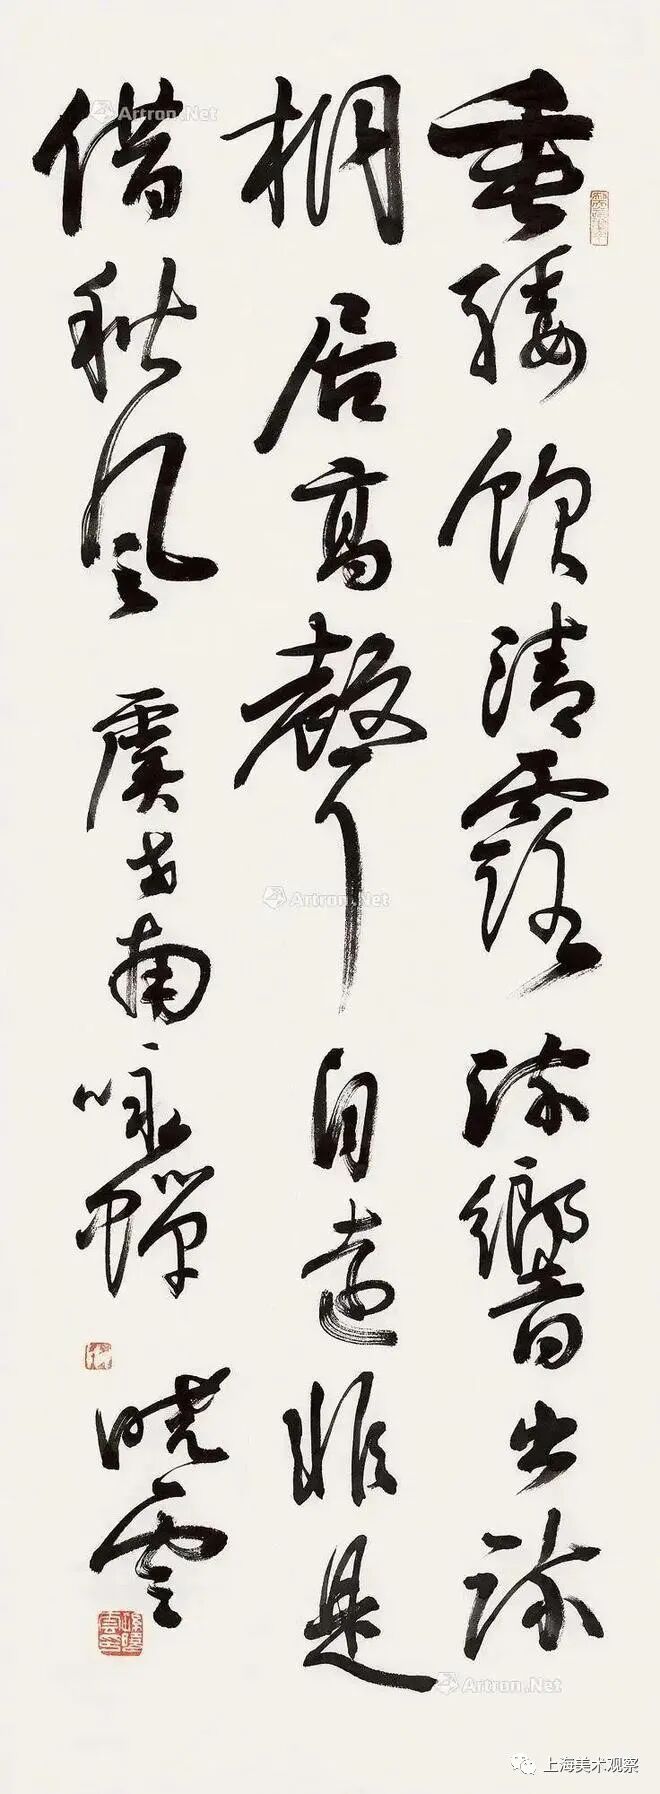 垂緌飲清露流響出疏
桐居高聲自遠非是
借秋風 虞世南詠蟬
曉雲
Artron.Net
Artron.Net
Artron.Net
上海美术观察